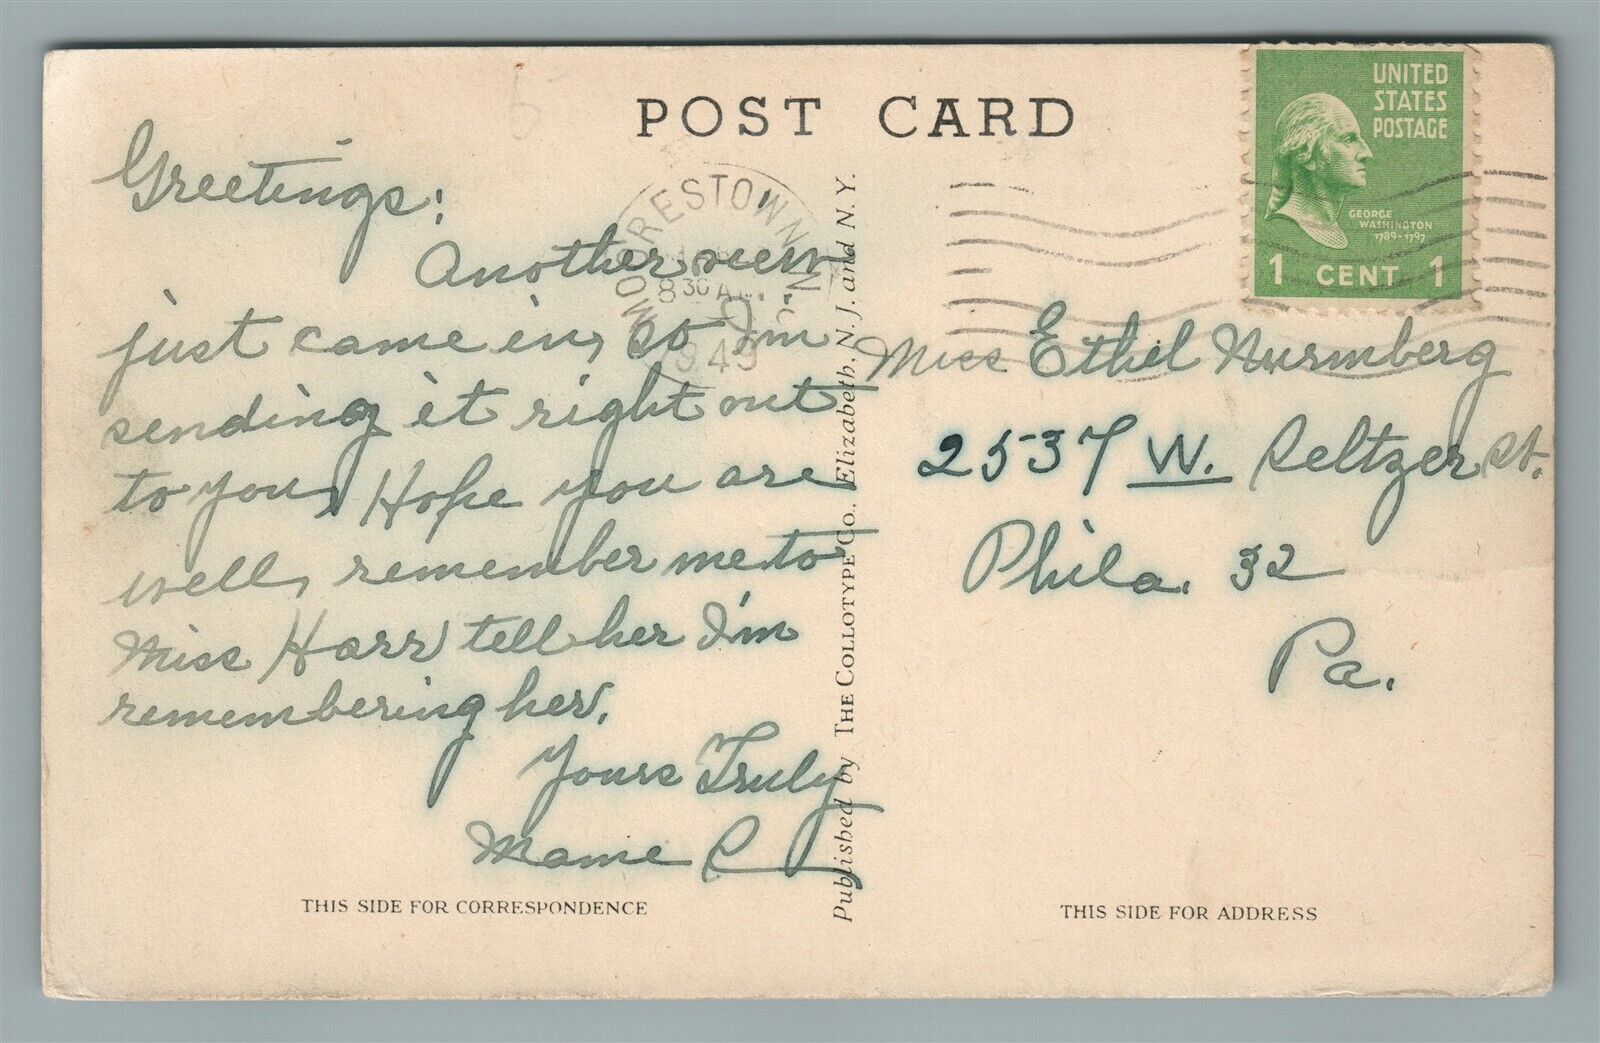 POST CARD
UNITED
STATES
POSTAGE
GEORGE
WASHINGTON
1789-1797
1 CENT 1
MOORESTOWN N.J.
8 30 AM
1949
Greetings:
Another view
just came in, so I'm
sending it right out
to you, Hope you are
well, remember me to
Miss Harr tell her I'm
remembering her.
Yours Truly
Mame C
THIS SIDE FOR CORRESPONDENCE
Published by THE COLLOTYPE CO., Elizabeth, N. J. and N. Y.
Miss Ethel Nurmberg
2537 W. Seltzer St.
Phila. 32
Pa.
THIS SIDE FOR ADDRESS